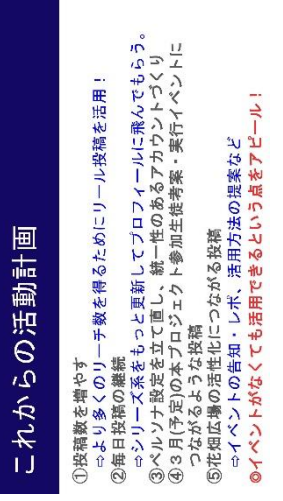 これからの活動計画
①投稿数を増やす
⇨より多くのリーチ数を得るためにリール投稿を活用！
②毎日投稿の継続
⇨シリーズ系をもっと更新してプロフィールに飛んでもらう。
③ペルソナ設定を立て直し、統一性のあるアカウントづくり
④３月(予定)の本プロジェクト参加生徒考案・実行イベントに
つながるような投稿
⑤花畑広場の活性化につながる投稿
⇨イベントの告知・レポ、活用方法の提案など
◎イベントがなくても活用できるという点をアピール！